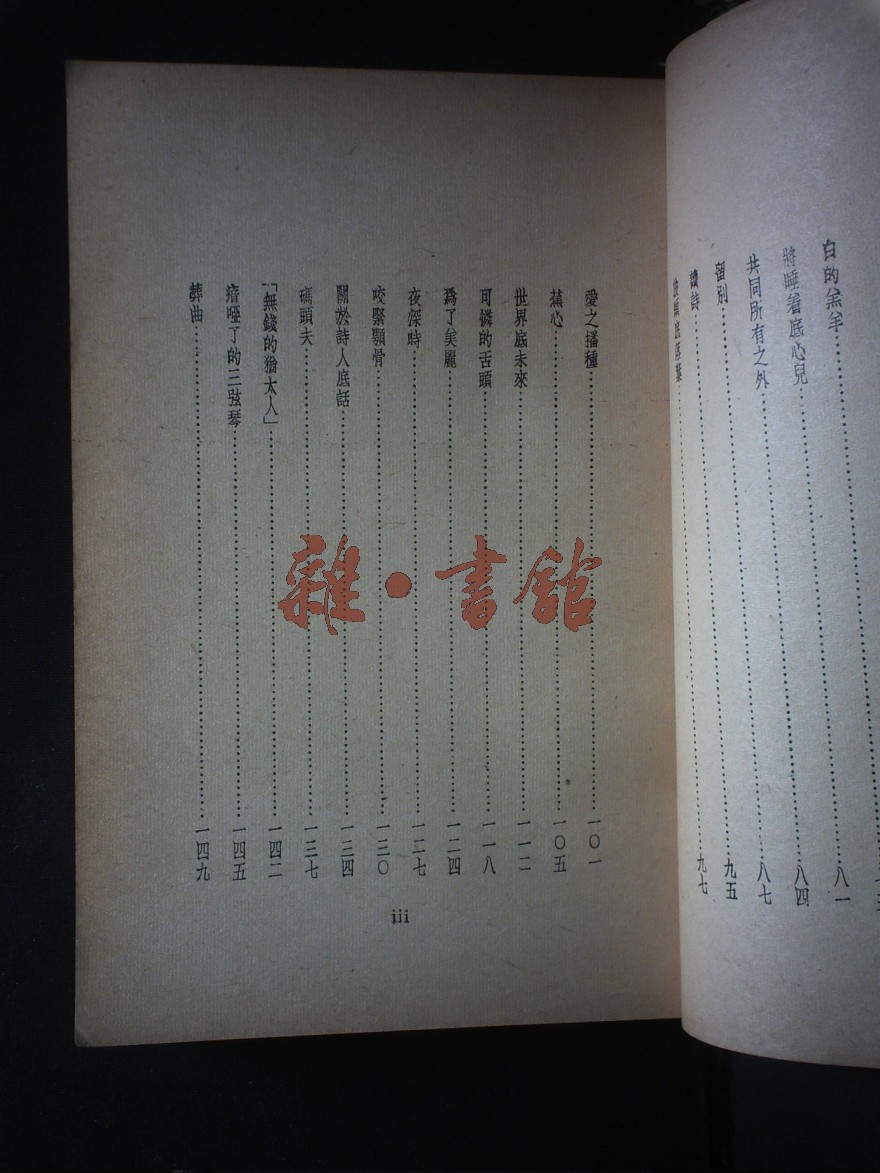 白的羔羊……八一
將睡着底心兒……八四
共同所有之外……八七
留別……九五
讀詩……九七
愛之播種……一〇一
蕉心……一〇五
世界底未來……一一二
可憐的舌頭……一一八
爲了美麗……一二四
夜深時……一二七
咬緊顎骨……一三〇
關於詩人底話……一三四
碼頭夫……一三七
「無錢的猶太人」……一四二
瘖啞了的三弦琴……一四五
葬曲……一四九
iii
雜·書館